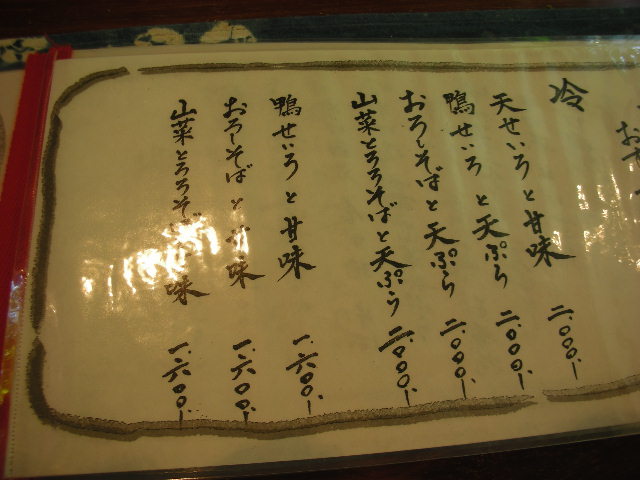 冷
天せいろと甘味 二、〇〇〇、
鴨せいろと天ぷら 二、〇〇〇、
おろしそばと天ぷら 二、〇〇〇、
山菜とろろそばと天ぷら 二、〇〇〇、
鴨せいろと甘味 一、六〇〇、
おろしそばと甘味 一、六〇〇、
山菜とろろそば 味 一、六〇〇、